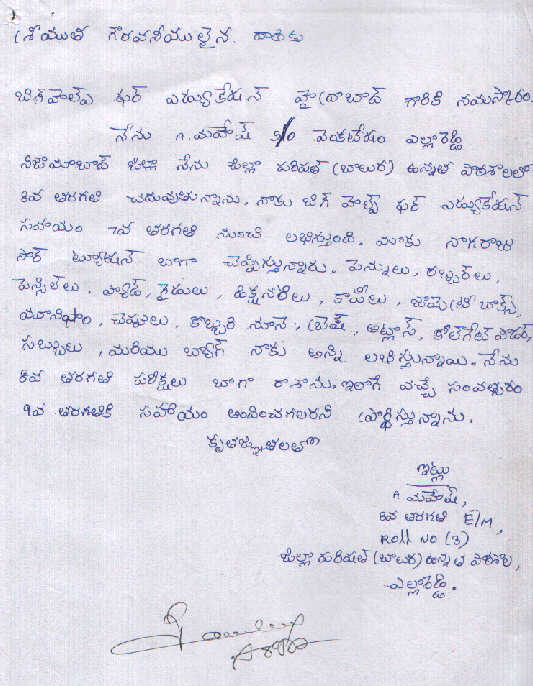 శ్రీయుత గౌరవనీయులైన దాతకు
బిగ్ హెల్ప్ ఫర్ ఎడ్యుకేషన్ హైద్రాబాద్ గారికి నమస్కారం.
నేను A. మహేష్ S/o వెంకటేశం ఎల్లారెడ్డి
నిజామాబాద్ జిల్లా నేను జిల్లా పరిషత్ (బాలుర) ఉన్నత పాఠశాలలో
8వ తరగతి చదువుతున్నాను. నాకు బిగ్ హెల్ప్ ఫర్ ఎడ్యుకేషన్
సహాయం 7వ తరగతి నుంచి లభిస్తుంది. మాకు నాగరాజు
సార్ ట్యూషన్ బాగా చెప్పిస్తున్నారు. పెన్నులు, రబ్బర్‌లు,
పెన్సిల్‌లు, ప్యాడ్, స్కేలులు, డిక్షనరీలు, కాపీలు, జామెట్రీ బాక్స్,
యూనిఫాం, చెప్పులు, కొబ్బరి నూనె, బ్రష్, అట్లాస్, కోల్గేట్ పౌడర్,
సబ్బులు, మరియు బ్యాగ్ నాకు అన్ని లభిస్తున్నాయి. నేను
8వ తరగతి పరీక్షలు బాగా రాశాను. ఇలాగే వచ్చే సంవత్సరం
9వ తరగతికి సహాయం అందించగలరని ప్రార్థిస్తున్నాను.
కృతజ్ఞతలతో
ఇట్లు
A మహేష్,
8వ తరగతి E/M,
Roll NO (3)
జిల్లా పరిషత్ (బాలుర) ఉన్నత పాఠశాల,
ఎల్లారెడ్డి.